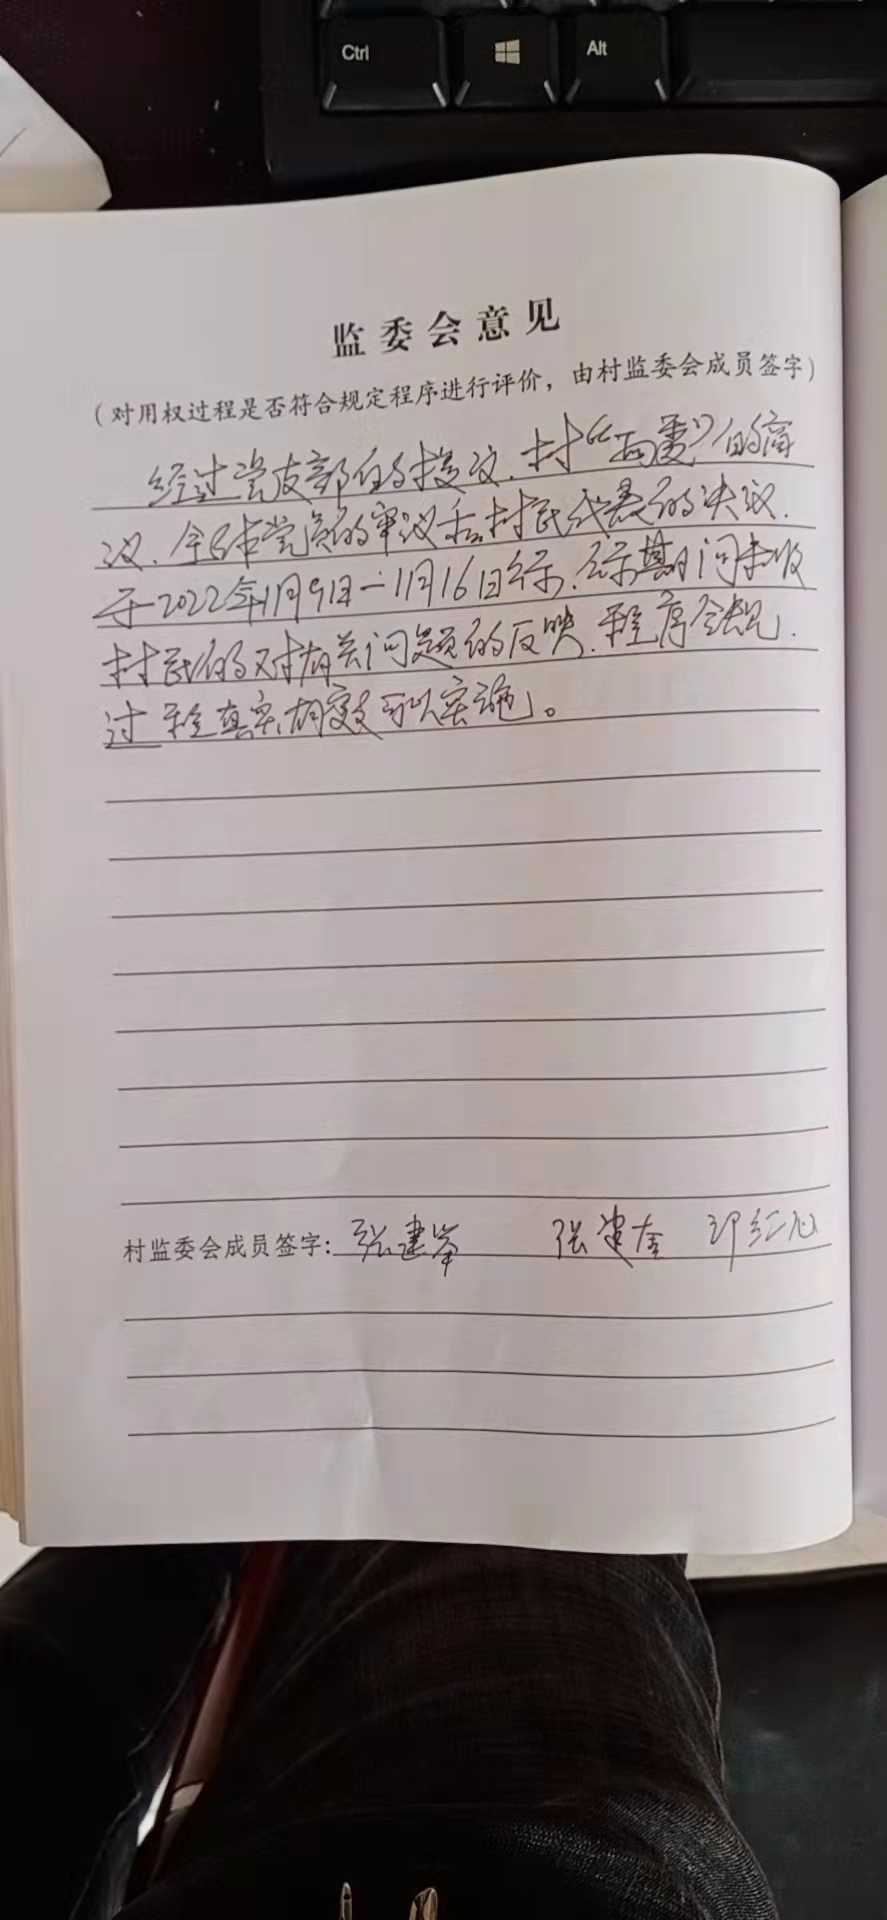 Ctrl
Alt
监委会意见
（对用权过程是否符合规定程序进行评价，由村监委会成员签字）
经过党支部的提议、村“两委”的商
议、全体党员的审议和村民代表的决议，
于2022年11月9日—11月16日公示，公示期间未收
村民的对有关问题的反映，程序合规，
过程真实有效可以实施。
村监委会成员签字：张建